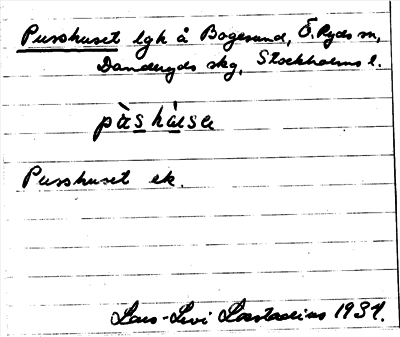 Pusshuset lgh å Bogesund, Ö. Ryds sn,
Danderyds skg, Stockholms l.
pàs hàusa
Pusshuset ek.
Lars-Levi Læstadius 1934.